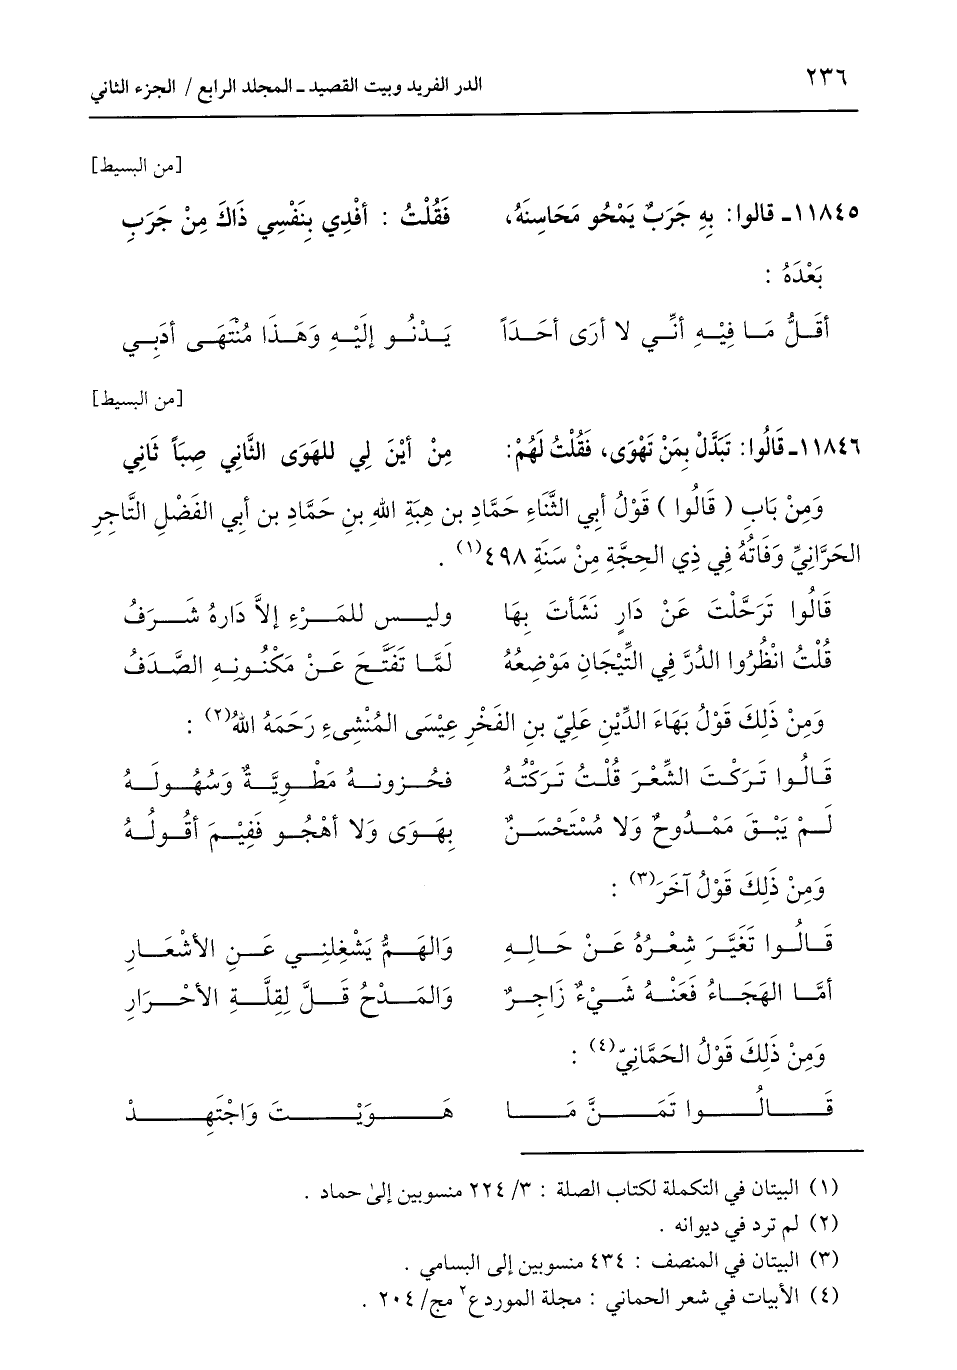 ٢٣٦ الدر الفريد وبيت القصيد ـ المجلد الرابع / الجزء الثاني
[من البسيط]
١١٨٤٥ـ قالوا: بِهِ جَرَبٌ يَمْحُو مَحَاسِنَهُ، فَقُلْتُ : أفْدِي بِنَفْسِي ذَاكَ مِنْ جَرَبِ
بَعْدَهُ :
أقَلُّ مَا فِيْهِ أنِّي لا أرَى أحَدَاً يَدْنُو إلَيْهِ وَهَذَا مُنْتَهَى أدَبِي
[من البسيط]
١١٨٤٦ـ قَالُوا: تَبَدَّلْ بِمَنْ تَهْوَى، فَقُلْتُ لَهُمْ: مِنْ أيْنَ لِي للهَوَى الثَّانِي صِبَاً ثَانِي
وَمِنْ بَابِ ( قَالُوا ) قَوْلُ أبي الثَّنَاءِ حَمَّادِ بن هِبَةِ اللهِ بن حَمَّادِ بن أبي الفَضْلِ التَّاجِرِ
الحَرَّانِيِّ وَفَاتُهُ فِي ذِي الحِجَّةِ مِنْ سَنَةِ ٤٩٨(١) .
قَالُوا تَرَحَّلْتَ عَنْ دَارٍ نَشَأتَ بِهَا وليس للمَرْءِ إلاَّ دَارهُ شَرَفُ
قُلْتُ انْظُرُوا الدُرَّ فِي التِّيْجَانِ مَوْضِعهُ لَمَّا تَفَتَّحَ عَنْ مَكْنُونِهِ الصَّدَفُ
وَمِنْ ذَلِكَ قَوْلُ بَهَاءَ الدِّيْنِ عَلِيّ بنِ الفَخْرِ عِيْسَى المُنْشِىءِ رَحَمَهُ اللهُ(٢) :
قَالُوا تَركْتَ الشِّعْرَ قُلْتُ تَرَكْتُهُ فحُزونهُ مَطْوِيَّةٌ وَسُهُولَهُ
لَمْ يَبْقَ مَمْدُوحٌ وَلا مُسْتَحْسَنٌ يهْوَى وَلا أهْجُو فَفِيْمَ أقُولُهُ
وَمِنْ ذَلِكَ قَوْلُ آخَرَ(٣) :
قَالُوا تَغَيَّرَ شِعْرُهُ عَنْ حَالِهِ وَالهَمُّ يَشْغِلنِي عَنِ الأشْعَارِ
أمَّا الهَجَاءُ فَعَنْهُ شَيْءٌ زَاجِرٌ وَالمَدْحُ قَلَّ لِقِلَّةِ الأحْرَارِ
وَمِنْ ذَلِكَ قَوْلُ الحَمَّانِيّ(٤) :
قَالُوا تَمَنَّ مَا هَوَيْتَ وَاجْتَهِدْ
(١) البيتان في التكملة لكتاب الصلة : ٣/ ٢٢٤ منسوبين إلىٰ حماد .
(٢) لم ترد في ديوانه .
(٣) البيتان في المنصف : ٤٣٤ منسوبين إلى البسامي .
(٤) الأبيات في شعر الحماني : مجلة المورد ع٢ مج/ ٢٠٤ .